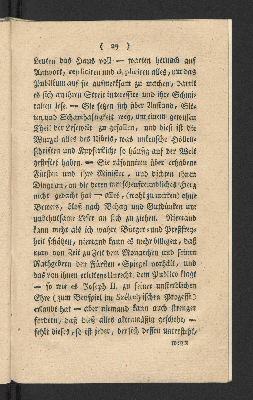 ( 29 )
Leuten das Haus voll — warten hernach auf
Antwort, repliciren und dupliciren alles, nur das
Publikum auf sie aufmerksam zu machen, damit
es sich an ihren Streit interessire und ihre Schmie-
ralien lese. — Sie setzen sich über Anstand, Sit-
ten und Schamhaftigkeit weg, um einem gewissen
Theil der Lesewelt zu gefallen, und dieß ist die
Wurzel alles des Uibels, was unkeusche Höllen-
schriften und Kupferstiche so häufig auf der Welt
gestiftet haben. — Sie räsonniren über erhabene
Fürsten und ihre Minister, und dichten ihnen
Dinge an, an die deren menschenfreundliches Herz
nicht gedacht hat — alles, (wohl zu merken) ohne
Beweis, bloß nach Behag und Gutdünken um
unbehutsame Leser an sich zu ziehen. Niemand
kann mehr als ich wahre Bürger- und Preßfrey-
heit schätzen, niemand kann es mehr billigen, daß
man von Zeit zu Zeit dem Monarchen und seinen
Rathgebern den Fürsten-Spiegel vorhält, und
das von ihnen erleuchte dem Publico sagt
— so wie es Joseph II. zu seiner unsterblichen
Ehre (zum Beyspiel im Szekulyischen Prozesse)
erlaubt hat — aber niemand kann auch strenger
fordern, daß dieß alles aktenmässig geschehe, —
fehlt dieses, so ist jeder, der sich dessen untersteht,
wenn